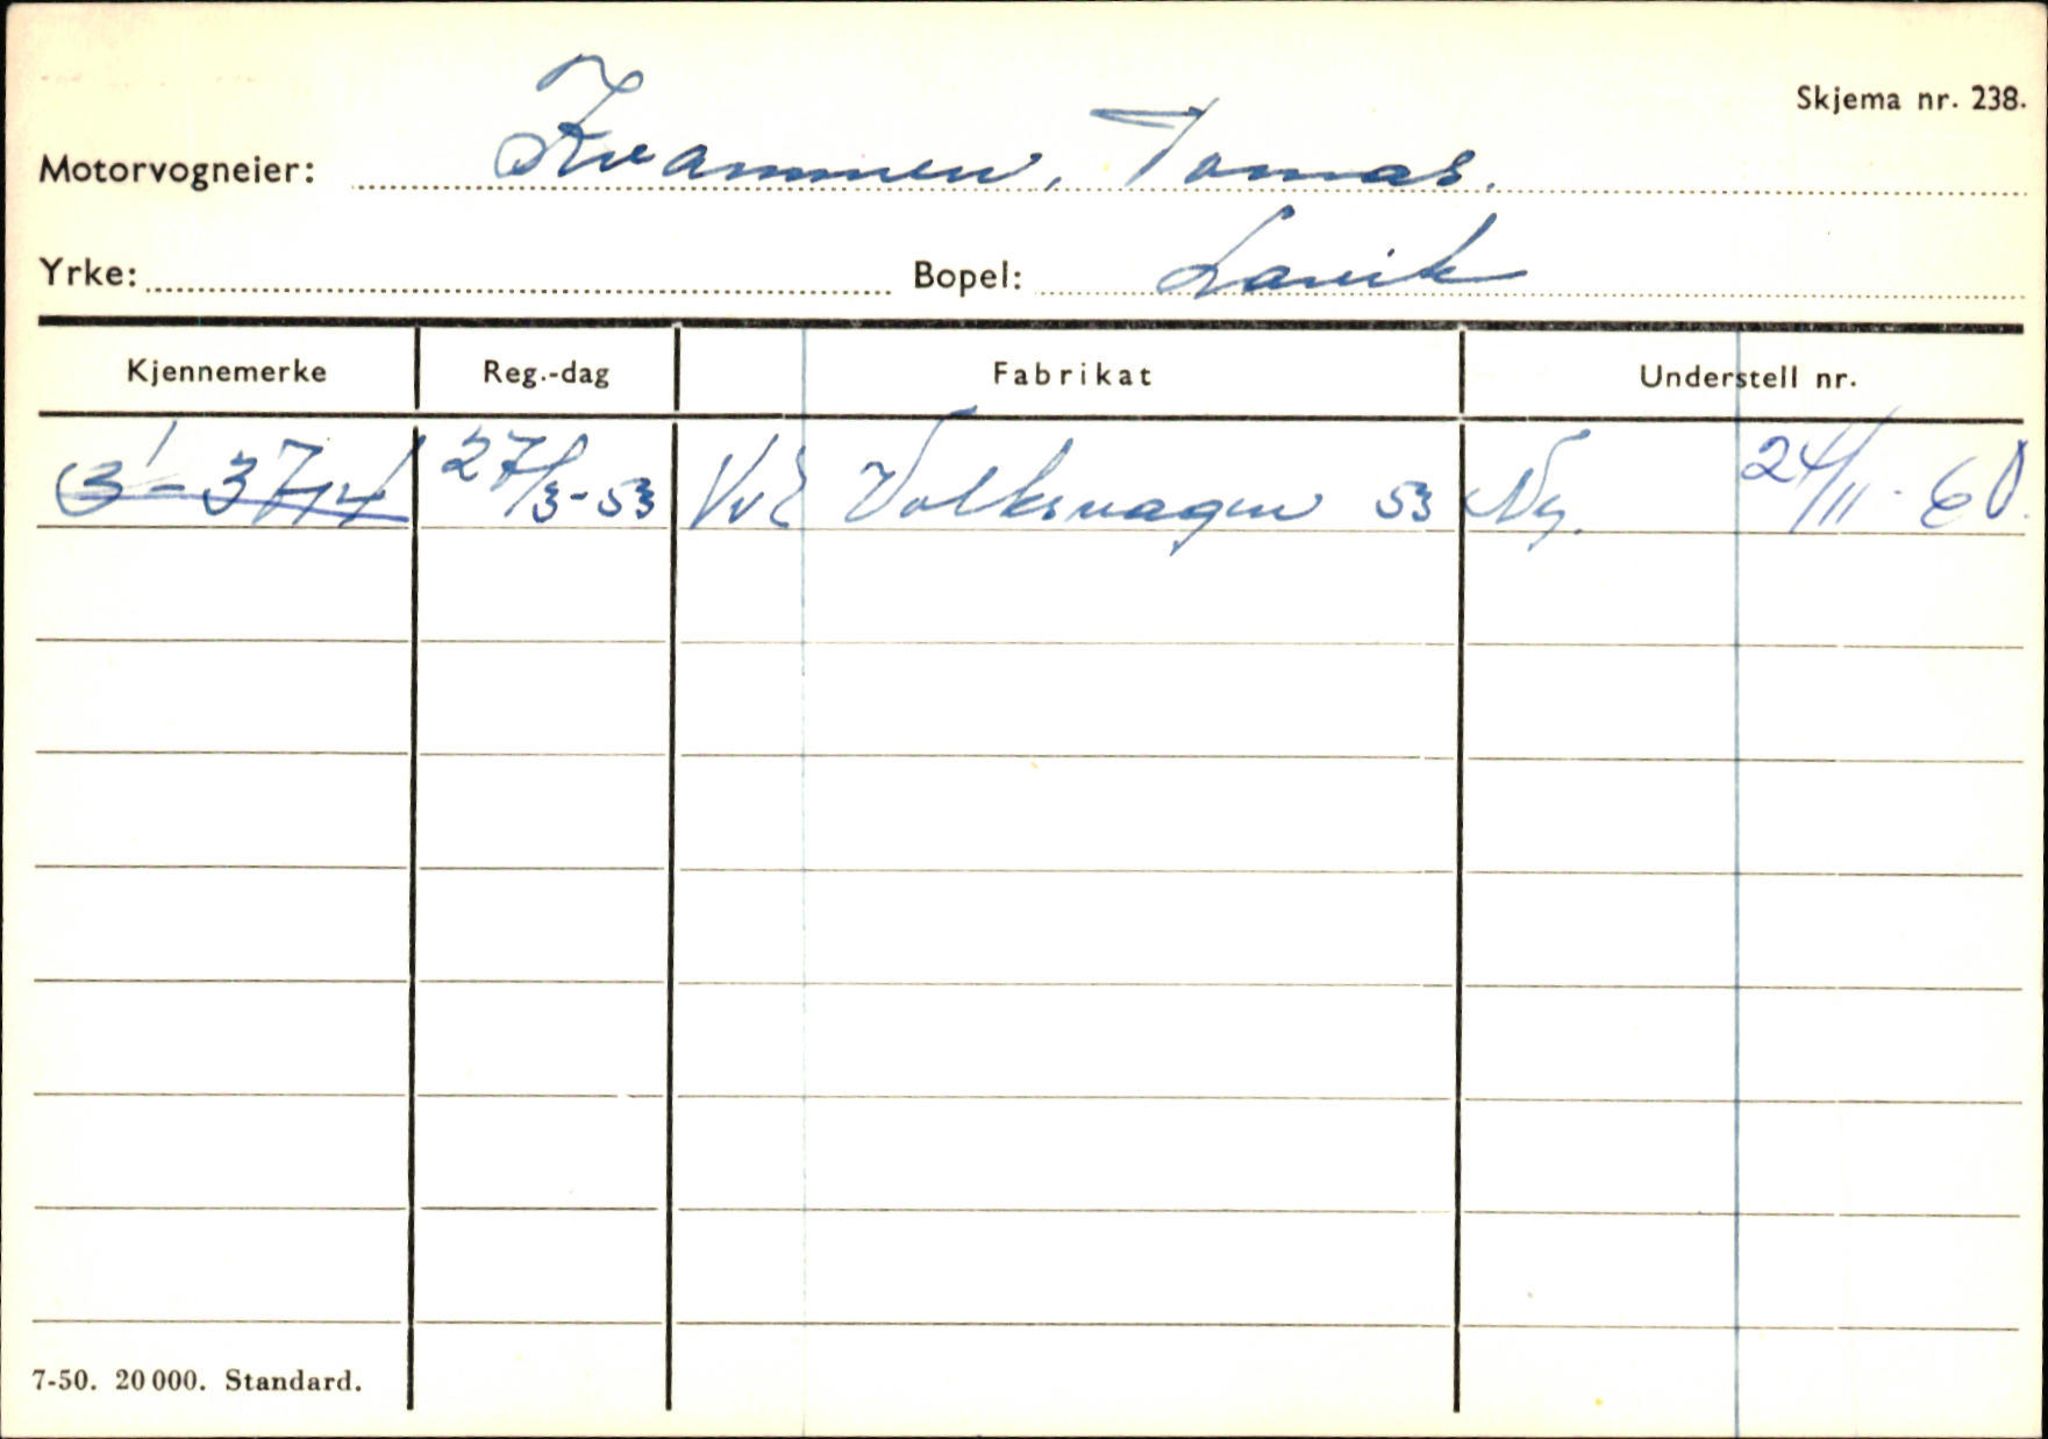 Skjema nr. 238.
Motorvogneier: Kvammen, Tomas.
Yrke: Bopel: Lavik
Kjennemerke Reg.-dag Fabrikat Understell nr.
27/3-53 Volkswagen 53 Ny. 24/11-60.
7-50. 20 000. Standard.